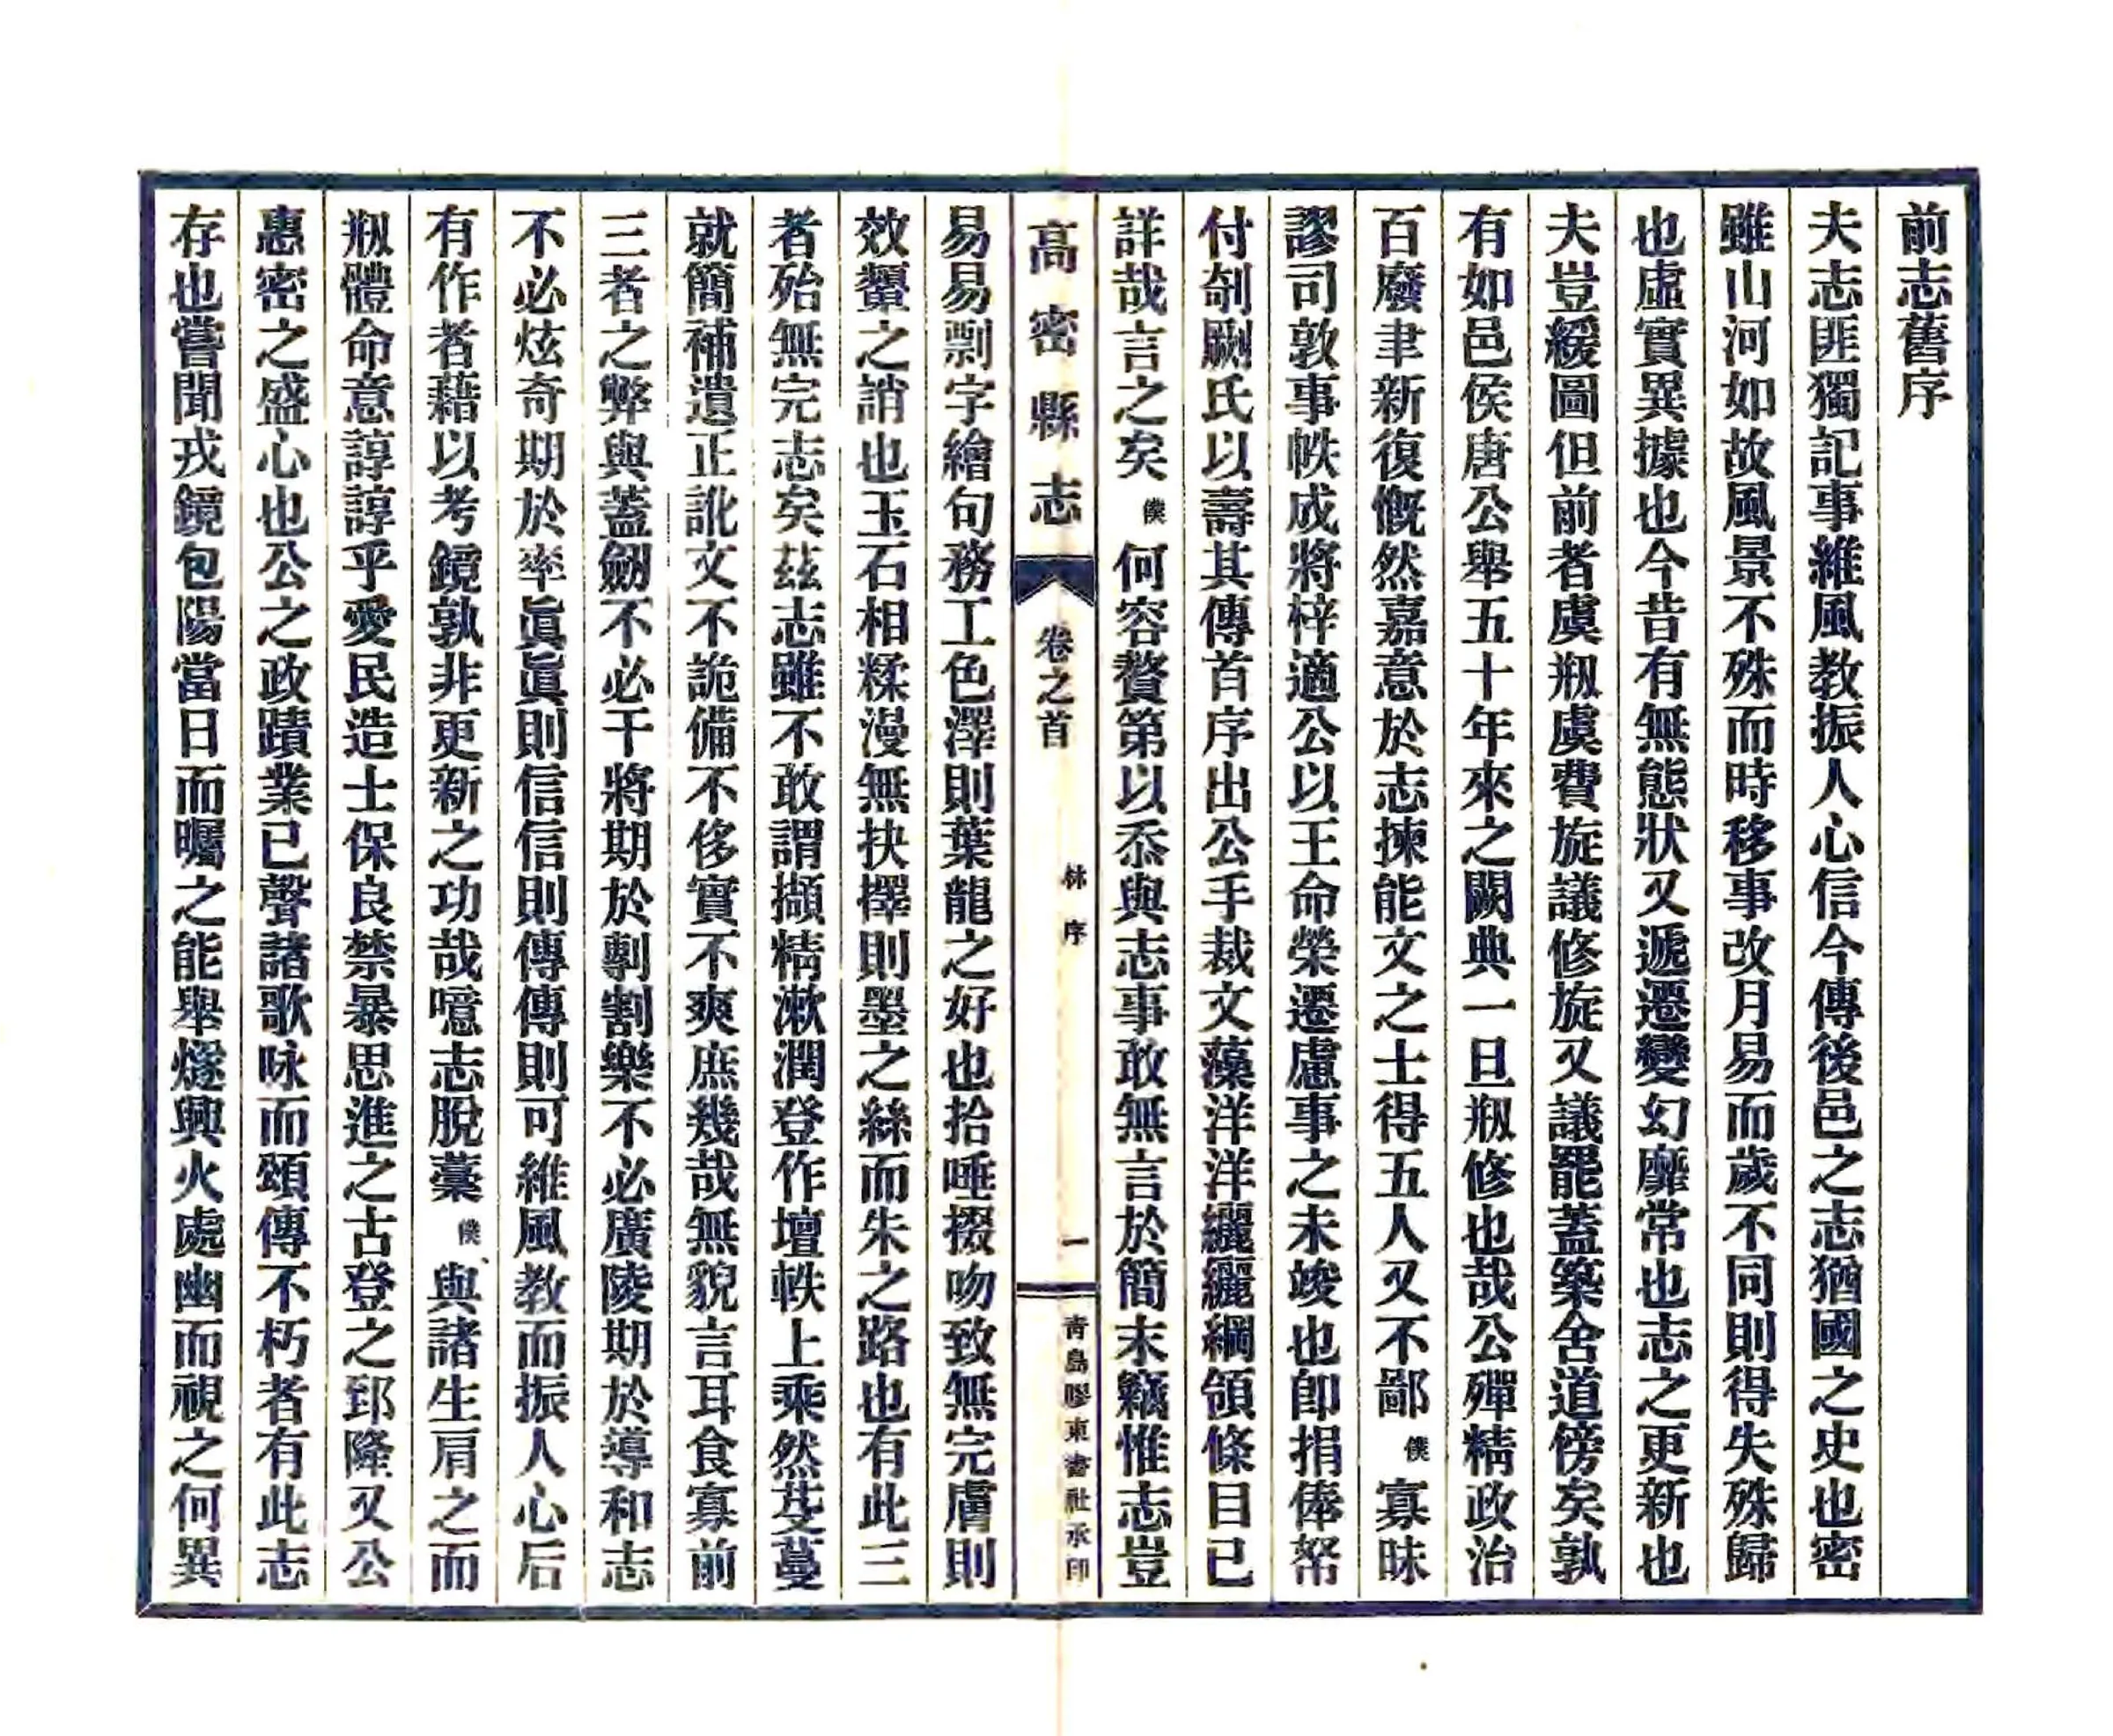 前志舊序
夫志匪獨記事維風教振人心信今傳後邑之志猶國之史也密
雖山河如故風景不殊而時移事改月易而歲不同則得失殊歸
也虛實異據也今昔有無態狀又遞遷變幻靡常也志之更新也
夫豈緩圖但前者虞剏虞費旋議修旋又議罷蓋築舍道傍矣孰
有如邑侯唐公舉五十年來之闕典一旦剏修也哉公殫精政治
百廢聿新復慨然嘉意於志揀能文之士得五人又不鄙僕寡昧
謬司敦事帙成將梓適公以王命榮遷慮事之未竣也卽捐俸帑
付剞劂氏以壽其傳首序出公手裁文藻洋洋纚纚綱領條目已
詳哉言之矣僕何容贅第以忝與志事敢無言於簡末竊惟志豈
高密縣志
卷之首
林序
一
靑島膠東書社承印
易易剽字繪句務工色澤則葉龍之好也拾唾掇吻致無完膚則
效顰之誚也玉石相糅漫無抉擇則墨之絲而朱之路也有此三
者殆無完志矣茲志雖不敢謂擷精漱潤登作壇軼上乘然芟蔓
就簡補遺正訛文不詭備不侈實不爽庶幾哉無貌言耳食寡前
三者之弊與蓋劒不必干將期於剸割樂不必廣陵期於導和志
不必炫奇期於率眞眞則信信則傳傳則可維風教而振人心后
有作者藉以考鏡孰非更新之功哉噫志脫藳僕與諸生肩之而
剏體命意諄諄乎愛民造士保良禁暴思進之古登之郅隆又公
惠密之盛心也公之政蹟業已聲諸歌咏而頌傳不朽者有此志
存也嘗聞戎鏡包陽當日而矚之能舉燧興火處幽而視之何異